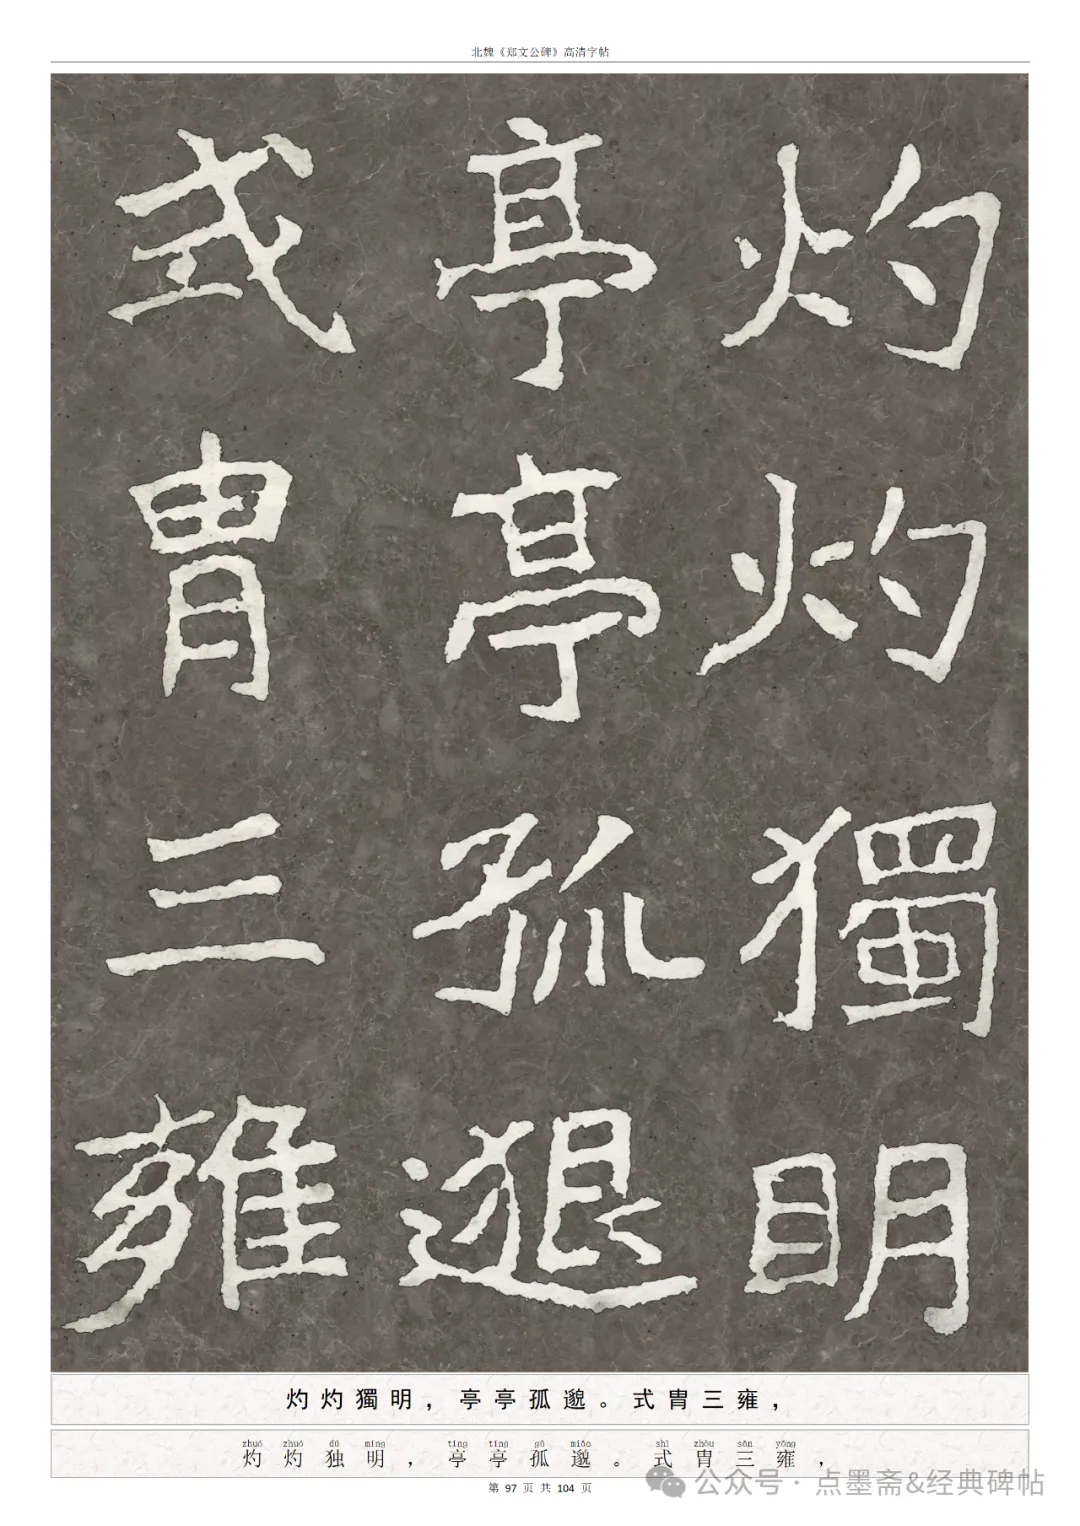 北魏《郑文公碑》高清字帖
灼灼獨明
亭亭孤邈
式胄三雍
灼灼獨明，亭亭孤邈。式胄三雍，
zhuó zhuó dú míng tíng tíng gū miǎo shì zhòu sān yōng
灼灼独明，亭亭孤邈。式胄三雍，
第 97 页 共 104 页
公众号 · 点墨斋&经典碑帖